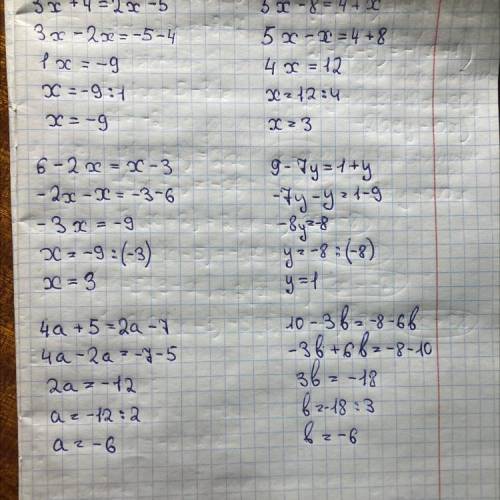 3x+4=2x-5
3x-2x=-5-4
1x=-9
x=-9:1
x=-9
5x-8=4+x
5x-x=4+8
4x=12
x=12:4
x=3
6-2x=x-3
-2x-x=-3-6
-3x=-9
x=-9:(-3)
x=3
9-7y=1+y
-7y-y=1-9
-8y=-8
y=-8:(-8)
y=1
4a+5=2a-7
4a-2a=-7-5
2a=-12
a=-12:2
a=-6
10-3в=-8-6в
-3в+6в=-8-10
3в=-18
в=-18:3
в=-6